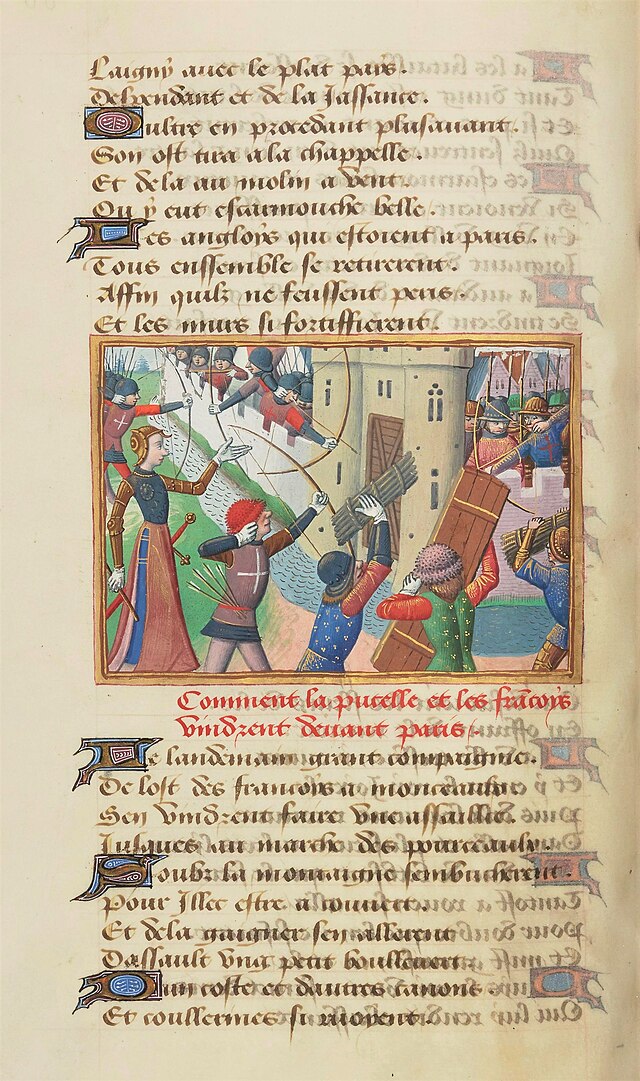 Laigny avec le plat pays.
Despendant et de la Jassance.
Oultre en procedant plusavant.
Son ost tira a la chappelle.
Et de la au molin a vent
Ou y eut escarmouche belle.
Les angloys qui estoient a paris.
Tous enssemble se retirerent.
Affin quilz ne feussent peris.
Et les murs si fortiffierent.
Comment la pucelle et les francoys
vindrent devant paris.
Le landemain grant compaignie.
De lost des francoys a monceaulx
Sen vindrent faire une assaillie.
Jusques au marche des pourceaulx.
Soubz la montaigne sembucherent.
Pour Illec estre a couvert.
Et dela gaigner sen allerent
Dassault ung petit boullevert.
Dun coste et dautres canons.
Et coullevrines si ruoyent.